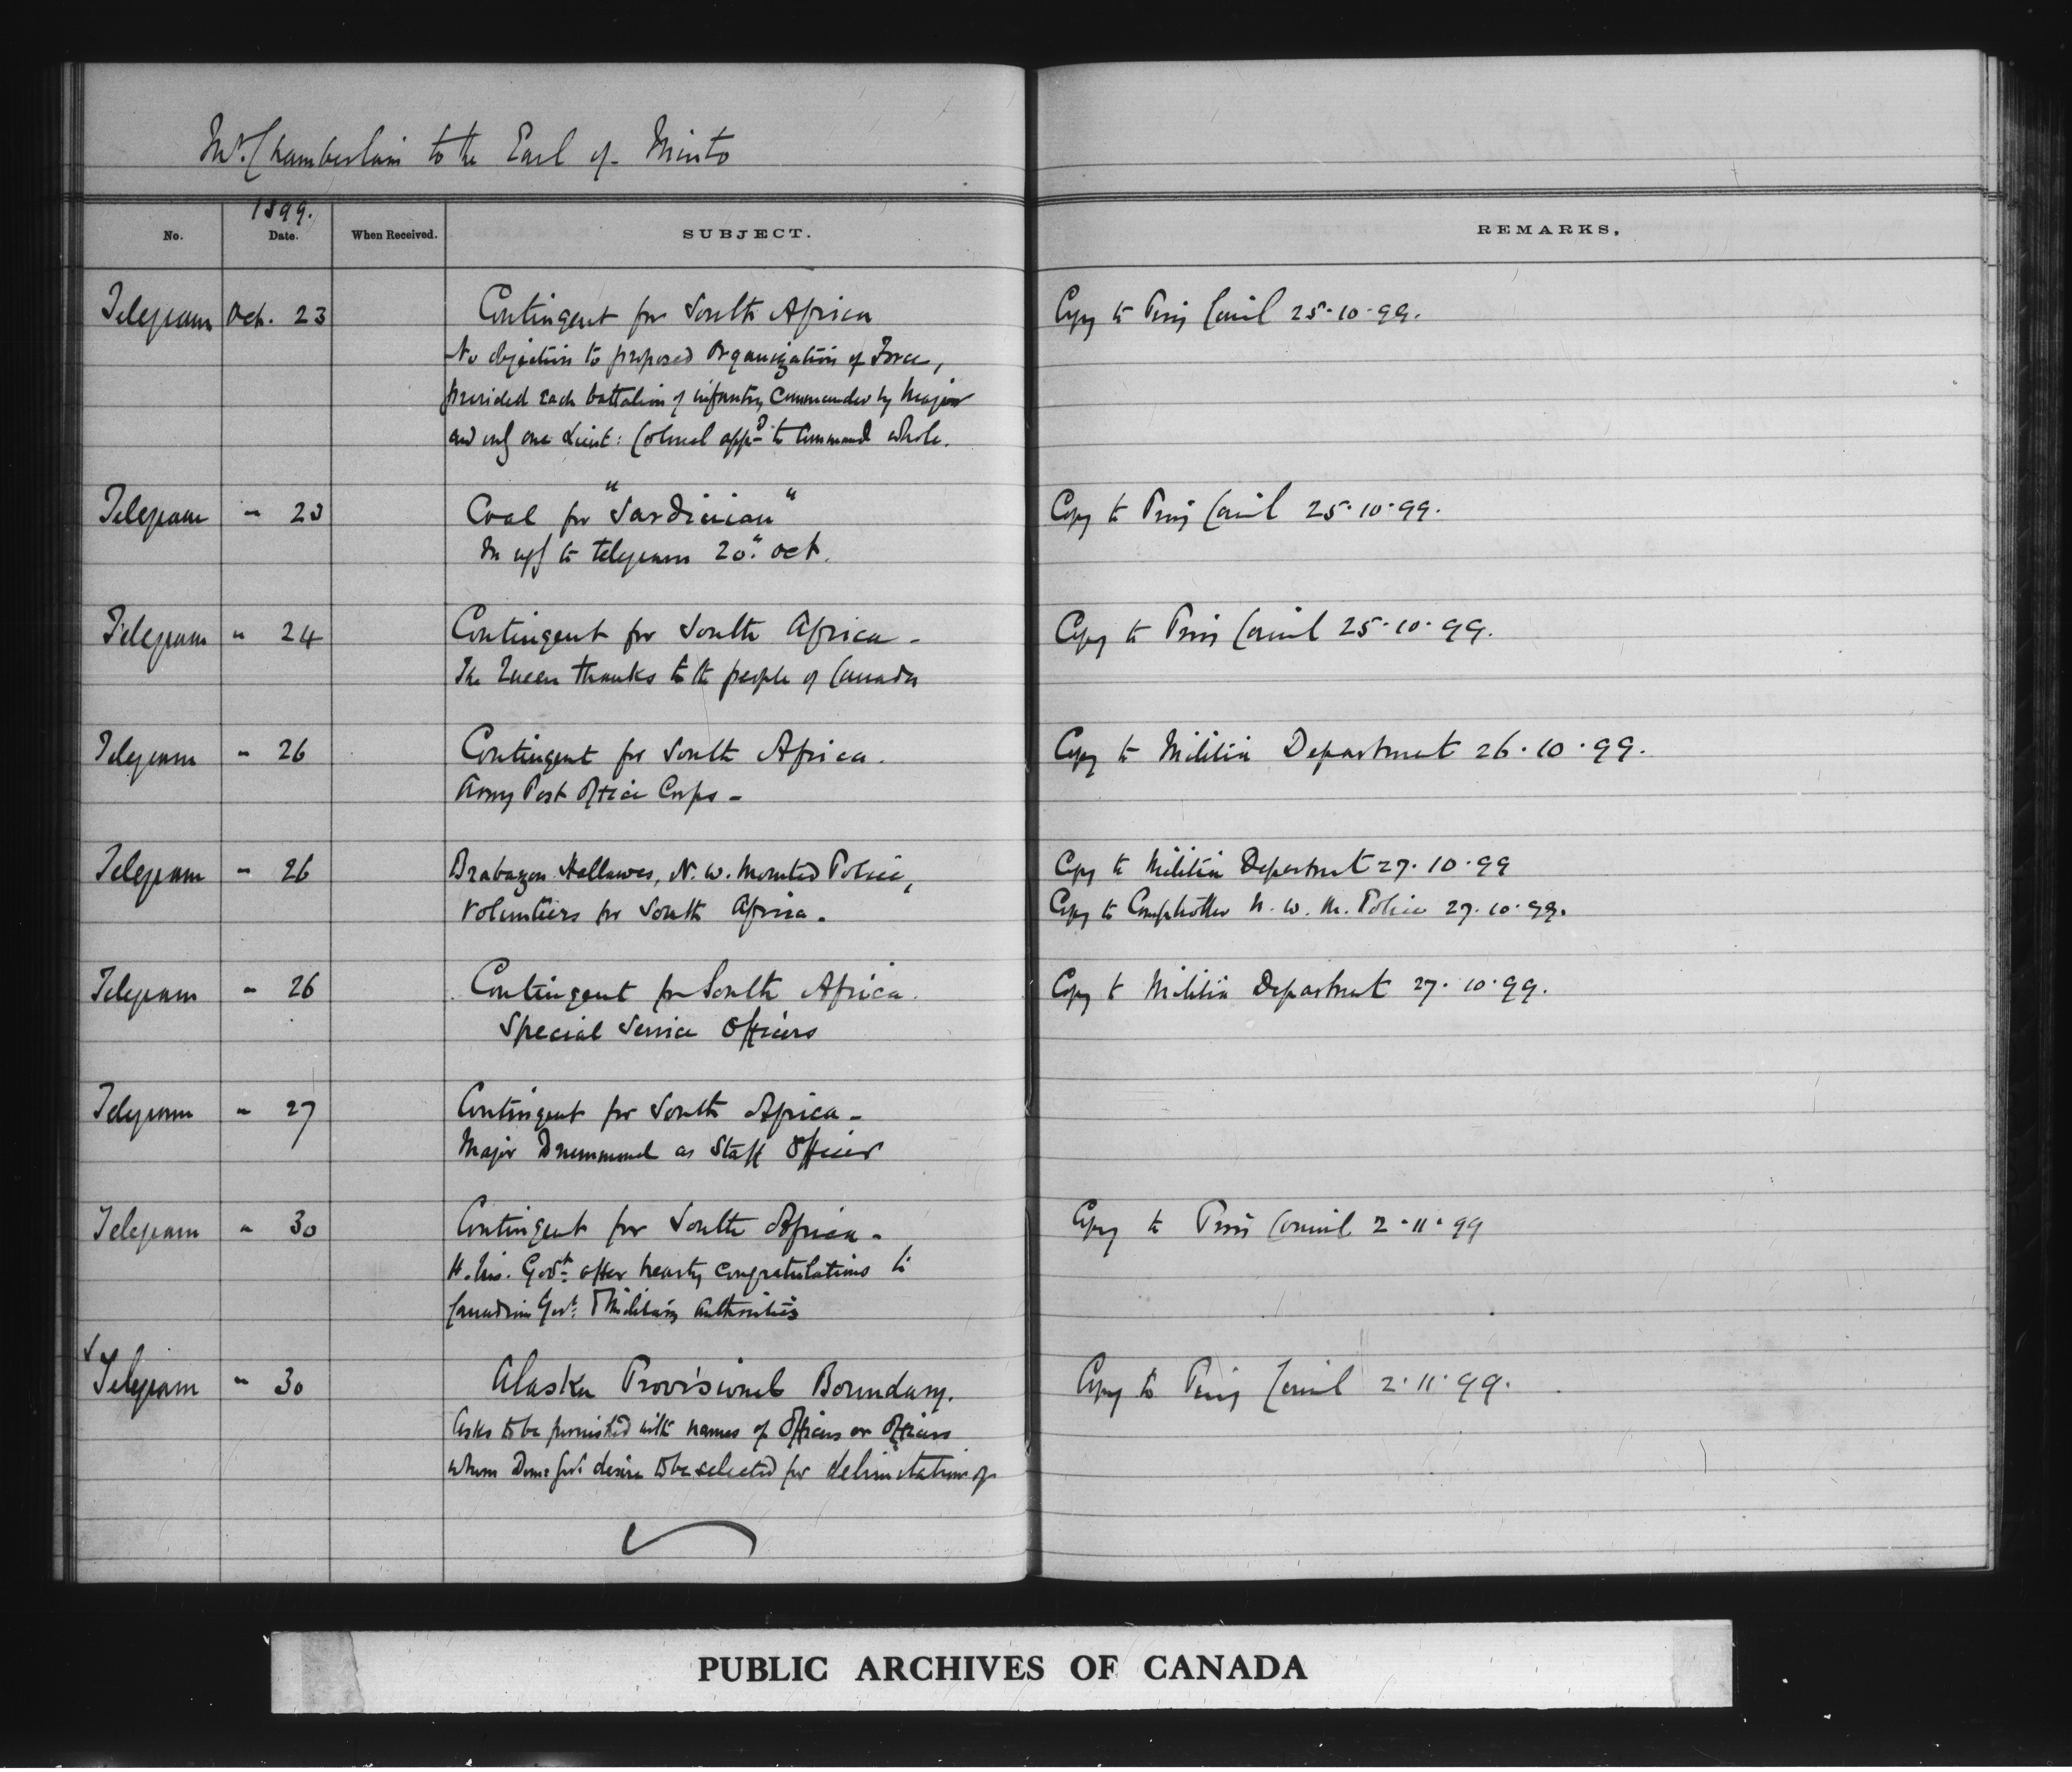 Mr. Chamberlain to the Earl of Minto
1899.
No. Date. When Received. SUBJECT. REMARKS.
Telegram Oct. 23 Contingent for South Africa Copy to Privy Council 25·10·99.
No objection to proposed Organization of Force,
provided each battalion of infantry commanded by Major
and only one Lieut: Colonel appd. to command whole.
Telegram " 23 Coal for "Sardinian" Copy to Privy Council 25·10·99.
In reply to telegram 20th Oct.
Telegram " 24 Contingent for South Africa - Copy to Privy Council 25·10·99.
The Queen thanks to the people of Canada
Telegram " 26 Contingent for South Africa. Copy to Militia Department 26·10·99.
Army Post Office Corps -
Telegram " 26 Brabazon Hallowes, N.W. Mounted Police, Copy to Militia Department 27·10·99
Volunteers for South Africa. Copy to Comptroller N.W.M. Police 27·10·99.
Telegram " 26 Contingent for South Africa. Copy to Militia Department 27·10·99.
Special Service Officers
Telegram " 27 Contingent for South Africa -
Major Drummond as Staff Officer
Telegram " 30 Contingent for South Africa - Copy to Privy Council 2·11·99
H. M's. Govt. offer hearty congratulations to
Canadian Govt. & Military Authorities
Telegram " 30 Alaska Provisional Boundary. Copy to Privy Council 2·11·99.
Asks to be furnished with names of Officer or Officers
whom Domn Govt. desire to be selected for delimitation of
PUBLIC ARCHIVES OF CANADA